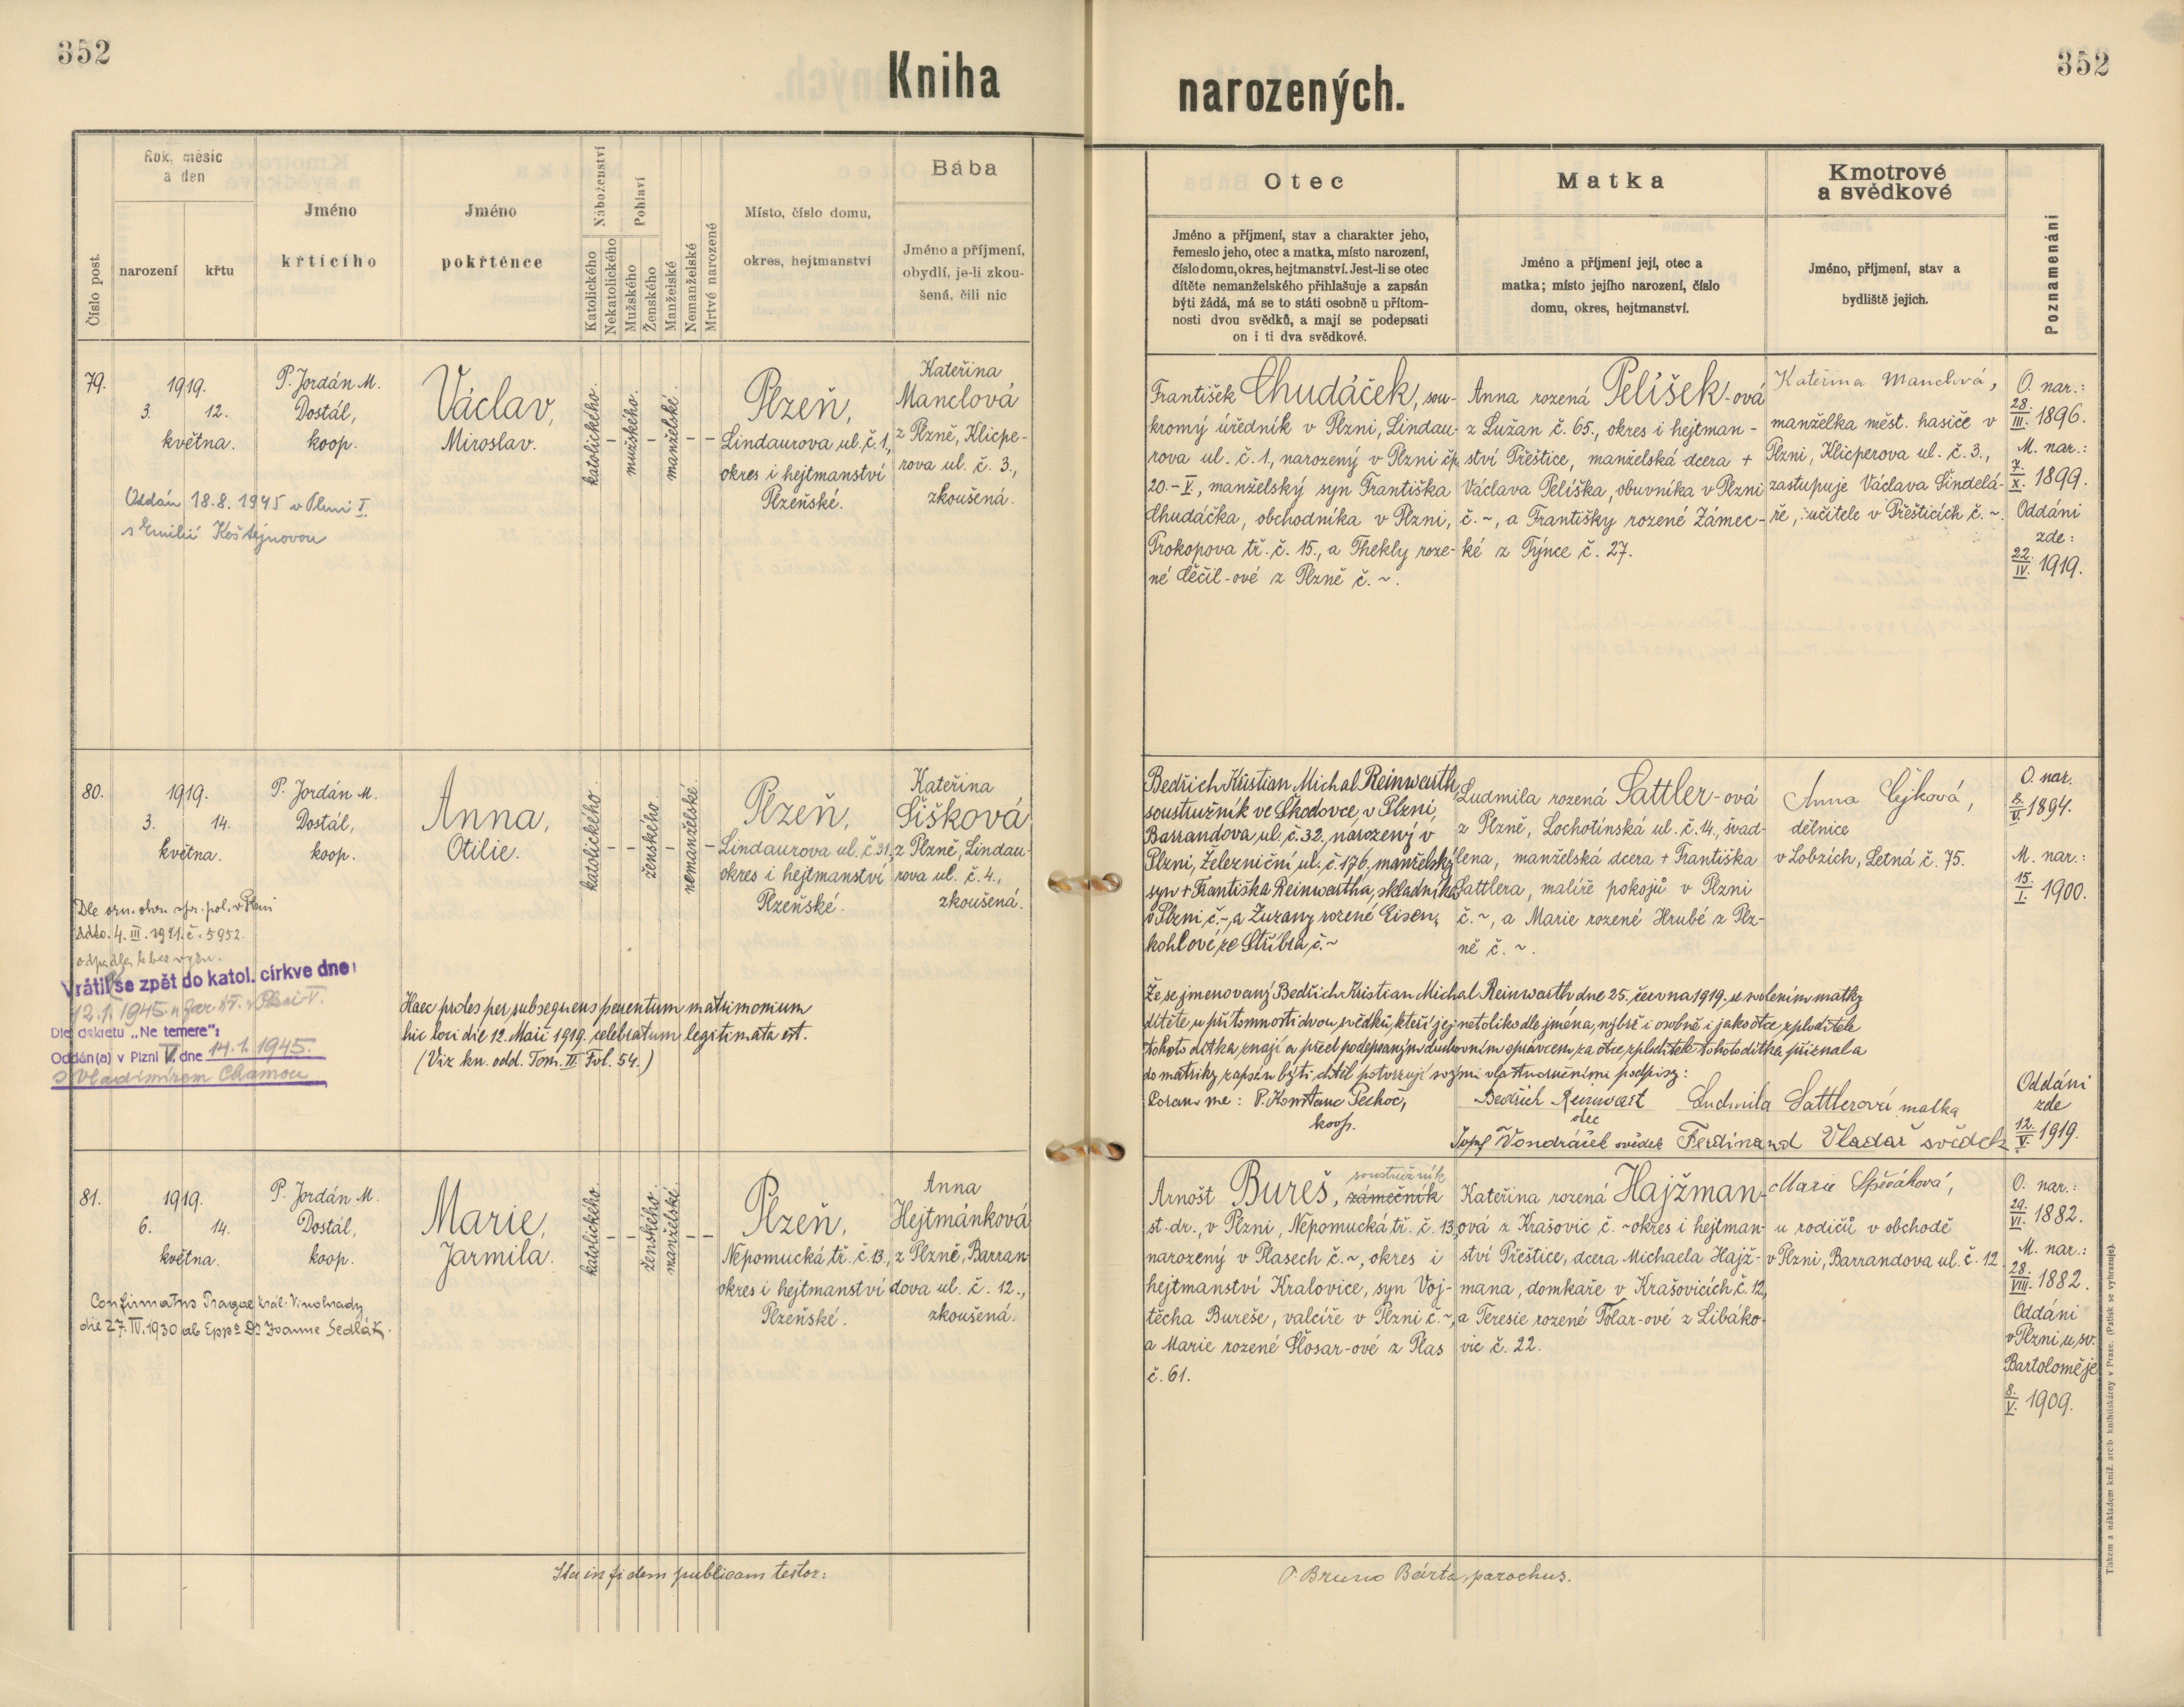 352
Kniha
Číslo post.
Rok, měsíc
a den
narození
křtu
Jméno
křtícího
Jméno
pokřtěnce
Náboženství
Katolického
Nekatolického
Pohlaví
Mužského
Ženského
Manželské
Nemanželské
Mrtvé narozené
Místo, číslo domu,
okres, hejtmanství
Bába
Jméno a příjmení,
obydlí, je-li zkou-
šená, čili nic
79.
1919.
3. 12.
května.
P. Jordán M.
Dostál,
koop.
Václav,
Miroslav.
katolického.
–
mužského.
–
manželské.
–
–
Plzeň,
Lindaurova ul. č. 1,
okres i hejtmanství
Plzeňské.
Kateřina
Manclová
z Plzně, Klicpe-
rova ul. č. 3.,
zkoušená.
Oddán 18.8.1945 v Plzni I.
s Emilií Koštejnovou
80.
1919.
3. 14.
května.
P. Jordán M.
Dostál,
koop.
Anna,
Otilie.
katolického.
–
–
ženského.
–
nemanželské.
–
Plzeň,
Lindaurova ul. č. 31,
okres i hejtmanství
Plzeňské.
Kateřina
Šišková
z Plzně, Lindau-
rova ul. č. 4.,
zkoušená.
Dle ozn. okr. spr. pol. v Plzni
ddto. 4. III. 1921. č. 5952.
odpadla k bez vyzn.
Vrátil se zpět do katol. církve dne
12.1.1945 v Plzni V.
Dle dekretu „Ne temere":
Oddán(a) v Plzni V. dne 14.1.1945.
s Vladimírem Chamou
Haec proles per subsequens parentum matrimonium
hic loci die 12. Maii 1919. celebratum legitimata est.
(Viz kn. odd. Tom. II Fol. 54.)
81.
1919.
6. 14.
května.
P. Jordán M.
Dostál,
koop.
Marie,
Jarmila.
katolického.
–
–
ženského.
manželské.
–
–
Plzeň,
Nepomucká tř. č. 13.,
okres i hejtmanství
Plzeňské.
Anna
Hejtmánková
z Plzně, Barran-
dova ul. č. 12.,
zkoušená.
Confirmatus Pragae Král. Vinohrady
die 27. IV. 1930 ab Eppo Dr Joanne Sedlák.
Ita in fidem publicam testor:
352
narozených.
Otec
Jméno a příjmení, stav a charakter jeho,
řemeslo jeho, otec a matka, místo narození,
číslo domu, okres, hejtmanství. Jest-li se otec
dítěte nemanželského přihlašuje a zapsán
býti žádá, má se to státi osobně u přítom-
nosti dvou svědků, a mají se podepsati
on i ti dva svědkové.
Matka
Jméno a příjmení její, otec a
matka; místo jejího narození, číslo
domu, okres, hejtmanství.
Kmotrové
a svědkové
Jméno, příjmení, stav a
bydliště jejich.
Poznamenání
František Chudáček, sou-
kromý úředník v Plzni, Lindau-
rova ul. č. 1, narozený v Plzni čp.
20.–V, manželský syn Františka
Chudáčka, obchodníka v Plzni,
Prokopova tř. č. 15., a Thekly roze-
né Čěčil-ové z Plzně č. ~.
Anna rozená Pelíšek-ová
z Lužan č. 65., okres i hejtman-
ství Přeštice, manželská dcera +
Václava Pelíška, obuvníka v Plzni
č. ~, a Františky rozené Zámec-
ké z Týnce č. 27.
Kateřina Manclová,
manželka měst. hasiče v
Plzni, Klicperova ul. č. 3.,
zastupuje Václava Šindelá-
ře, učitele v Přešticích č. ~.
O. nar.:
28./III. 1896.
M. nar.:
7./X. 1899.
Oddáni
zde:
22./IV. 1919.
Bedřich Kristian Michal Reinwarth,
soustružník ve Škodovce, v Plzni,
Barrandova ul. č. 32, narozený v
Plzni, Železniční ul. č. 176, manželský
syn + Františka Reinwartha, skladníka
v Plzni č. ~, a Zuzany rozené Eisen-
kohlové, ze Stříbra č. ~
Ludmila rozená Sattler-ová
z Plzně, Lochotínská ul. č. 14., švad-
lena, manželská dcera + Františka
Sattlera, malíře pokojů v Plzni
č. ~, a Marie rozené Hrubé z Plz-
ně č. ~.
Anna Cejková,
dělnice
v Lobzích, Letná č. 75.
O. nar.
8./V. 1894.
M. nar.:
15./I. 1900.
Že se jmenovaný Bedřich Kristian Michal Reinwarth dne 25. června 1919, u svolením matky
dítěte, u přítomnosti dvou svědků, kteří jej netoliko dle jména, nýbrž i osobně i jako otce zploditele
tohoto dítka znají a před podepsaným duchovním správcem za otce zploditele tohoto dítka přiznal a
do matriky zapsán býti chtěl potvrzují svými vlastnoručními podpisy:
Coram me: P. Konstanc Pechoč,
koop.
Bedřich Reinwart
otec
Ludmila Sattlerová matka
Josef Vondráček svědek Ferdinand Vladař svědek
Oddáni
zde
12./V. 1919.
Arnošt Bureš, zámečník
soustružník
st. dr., v Plzni, Nepomucká tř. č. 13,
narozený v Plasech č. ~, okres i
hejtmanství Kralovice, syn Voj-
těcha Bureše, valcíře v Plzni č. ~,
a Marie rozené Šlosar-ové z Plas
č. 61.
Kateřina rozená Hajžman-
ová z Krašovic č. ~ okres i hejtman-
ství Přeštice, dcera Michaela Hajž-
mana, domkaře v Krašovicích č. 12,
a Teresie rozené Tolar-ové z Libáko-
vic č. 22.
Marie Spěváková,
u rodičů v obchodě
v Plzni, Barrandova ul. č. 12.
O. nar.:
29./VI. 1882.
M. nar.:
28./VIII. 1882.
Oddáni
v Plzni u sv.
Bartoloměje
8./V. 1909.
P Bruno Bárta, parochus.
Tiskem a nákladem kníž. arcib. knihtiskárny v Praze. (Patisk se vyhrazuje).